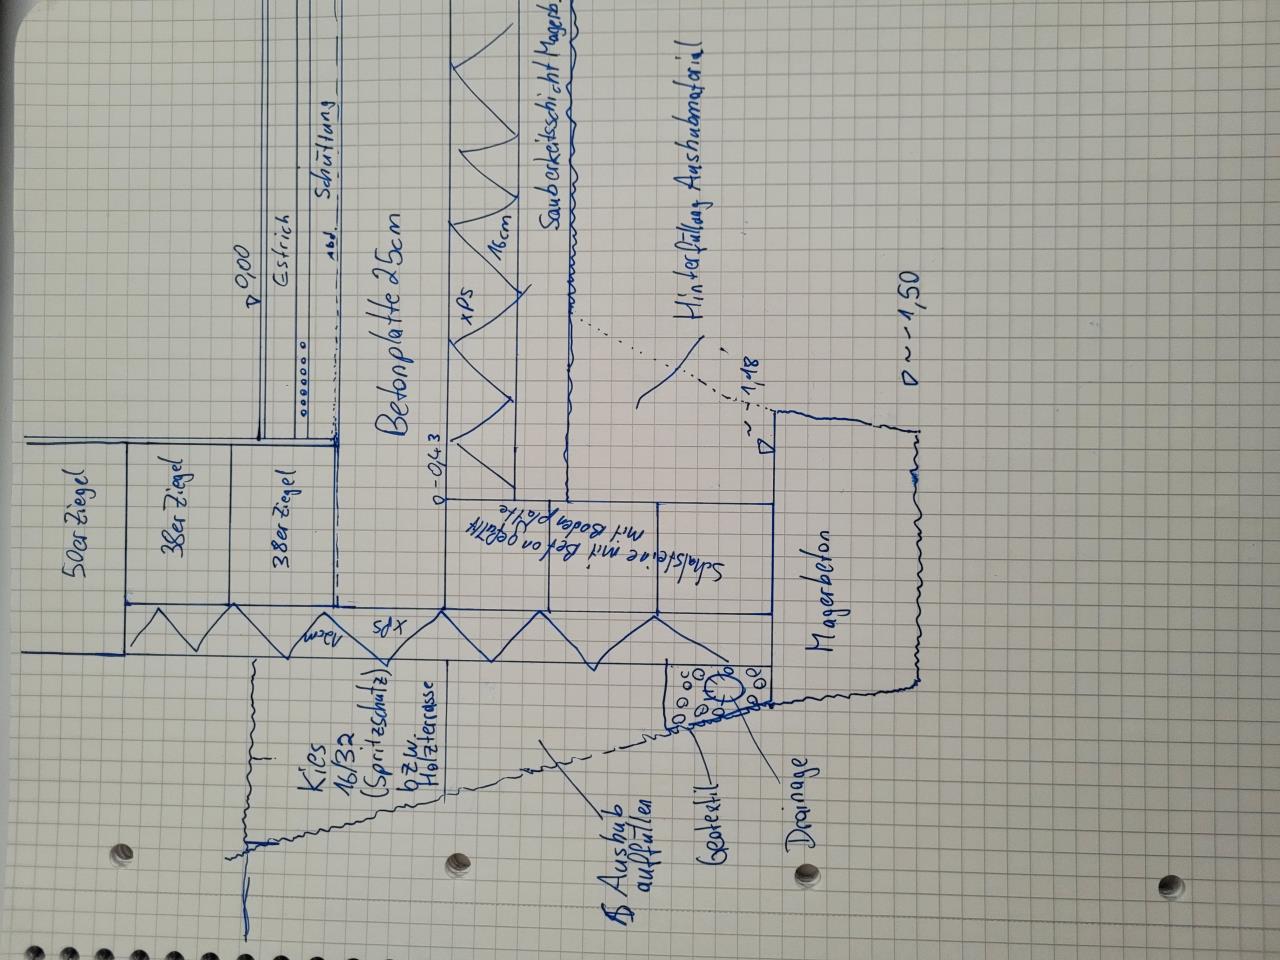 50er Ziegel
38er Ziegel
38er Ziegel
▽ 0,00
Estrich
Abd. Schüttung
Betonplatte 25cm
-0,43
XPS
16cm
Sauberkeitsschicht Magerb.
Hinterfüllung Aushubmaterial
▽ ~ -1,18
▽ ~ -1,50
Schalsteine mit Beton gefüllt
mit Bodenplatte
Magerbeton
12cm
XPS
Kies
16/32
(Spritzschutz)
bzw.
Holzterrasse
Aushub
auffüllen
Geotextil
Drainage